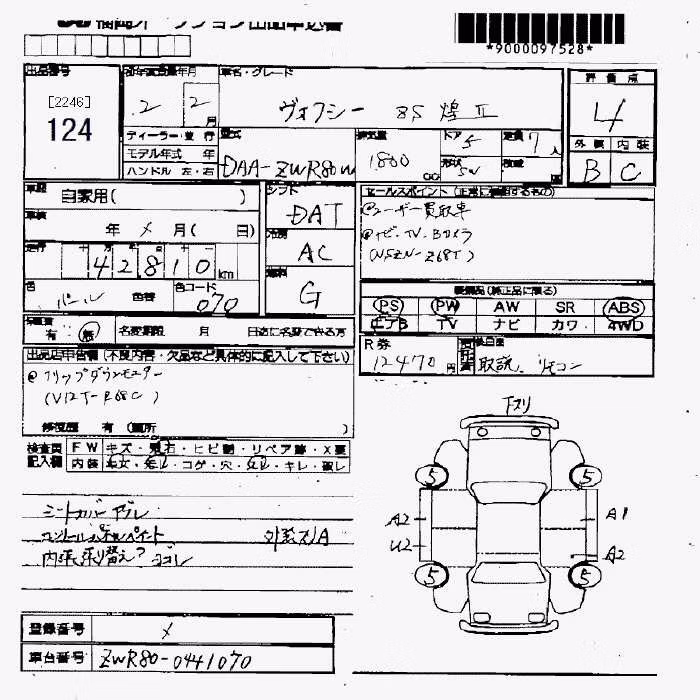 オークション出品車送書
*9000097528*
出品番号
[2246]
124
初年度登録年月
2 年 2 月
ディーラー・並 行
モデル年式 年
ハンドル 左・右
車名・グレード
ヴォクシー ZS 煌Ⅱ
型式
DAA-ZWR80W
排気量
1800 CC
ドア
5
形状
SW
定員
7 人
積載
評 価 点
4
外 装 内 装
B C
車歴
自家用( )
車検
年 × 月( 日)
走行
十 万 千 百 十 一
4 2 8 1 0 km
色
パール
色替
カラーコード
070
シフト
DAT
冷房
AC
燃料
G
セールスポイント (正常に機能するもの)
@ユーザー買取車
@ナビ・TV・Bカメラ
(NSZN-Z68T)
装備品(純正品に限る)
PS PW AW SR ABS
エアB TV ナビ カワ 4WD
有・無
名変期限 月 日迄に名変できる方
R券
12470 円
取説、リモコン
出品店申告欄(不良内容・欠品など具体的に記入して下さい)
@フリップダウンモニター
(V12T-R68C)
修復歴 有 (箇所 )
検査員記入欄
FW キズ・飛石・ヒビ割・リペア跡・X要
内装
コゲ・穴・
キレ・破レ
シートカバー
ペイント
外装スリA
内張り替え? ヨゴレ
下スリ
5 5
A2 A1
U2 A2
5 5
登録番号 ×
車台番号 ZWR80-0441070